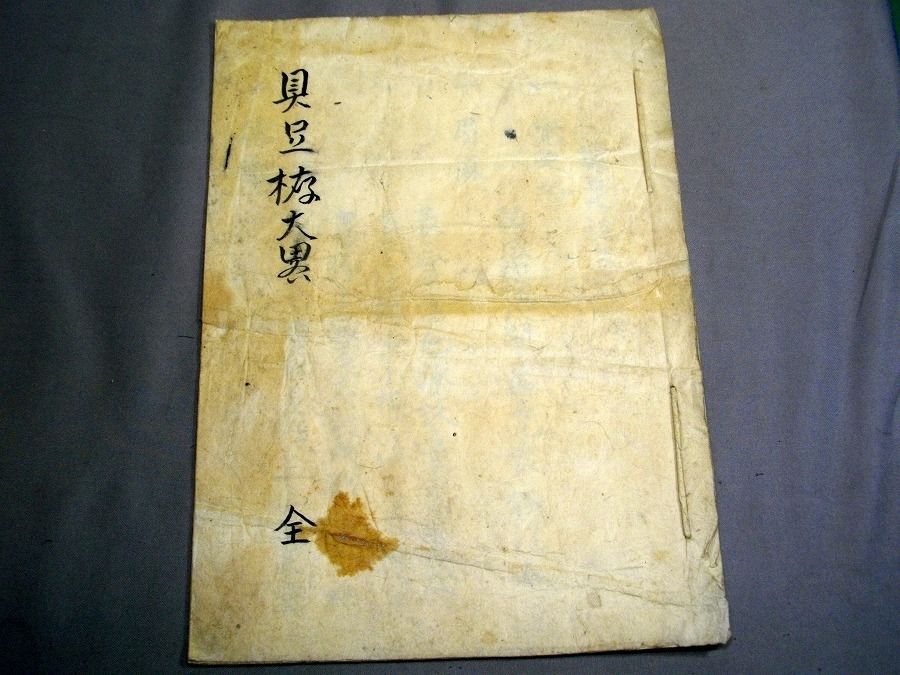 具足拵大畧
全